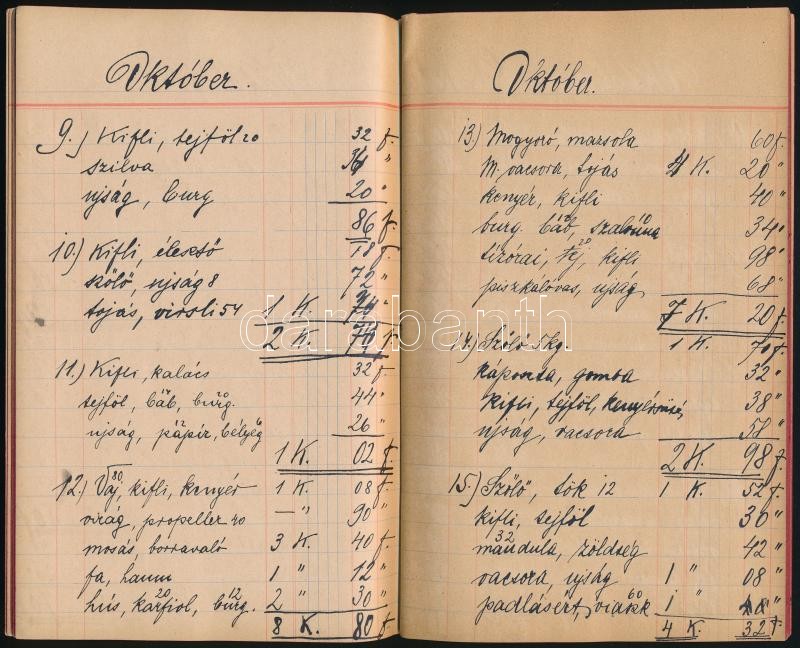 Október.
9.) Kifli, tejföl 20 32 f.
szilva 34 "
ujság, burg 20 "
86 f.
10.) Kifli, élesztő 18 f.
szőlő, ujság 8 72 "
tojás, virsli 54 1 K.
2 K.
11.) Kifli, kalács 32 f.
tejföl, burg. 44 "
ujság, papír, bélyeg 26 "
1 K. 02 f.
12.) Vaj, 80 kifli, kenyér 1 K. 08 f.
virág, propeller 40 — " 90 "
mosás, borravaló 3 K. 40 f.
fa, 1 " 12 "
hús, karfiol, 20 burg. 12 2 " 30 "
8 K. 80 f.
Október.
13.) Mogyoró, mazsola 60 f.
M. vacsora, tojás 4 K. 20 "
kenyér, kifli 40 "
burg. szalonna 34 "
tízórai, tej, 20 kifli 98 "
piszkálóvas, ujság 68 "
7 K. 20 f.
14.) Szőlő 5kg. 1 K. 70 f.
káposzta, gomba 32 "
kifli, tejföl, kenyérsütés 38 "
ujság, vacsora 58 "
2 K. 98 f.
15.) Szőlő, tök 12 1 K. 52 f.
kifli, tejföl 30 "
mandula, 32 zöldség 42 "
vacsora, ujság 1 " 08 "
padlásért, 60 1 "
4 K. 32 f.
darabanth.com